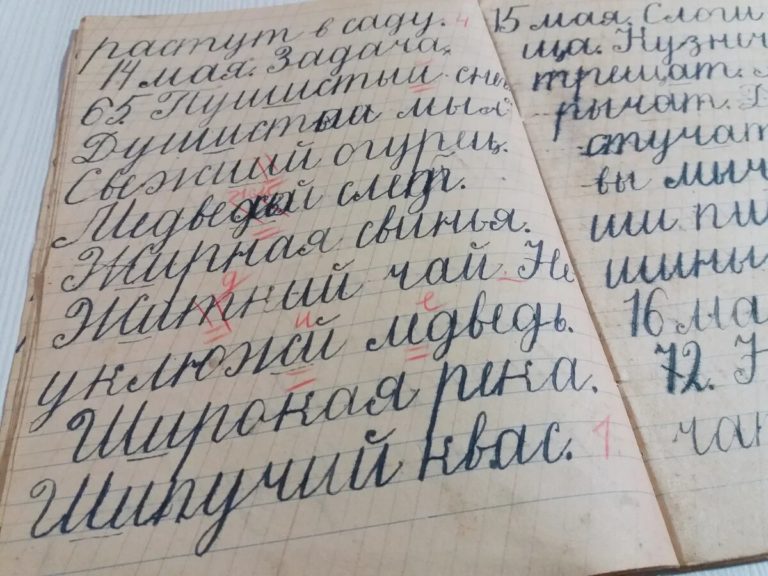 растут в саду.
14 мая. Задача.
65. Пушистый сне
Душистыа мыл
Свежиий огурец.
Медвежй след.
Жирная свинья.
Житкий чай Не
уклюжй мдведь.
Широкая река.
Шипучий квас.
15 мая. Слоги
ща. Кузнеч
трещат.
рычат.
стучат
вы мыч
ши пи
шины
16 ма
72. Н